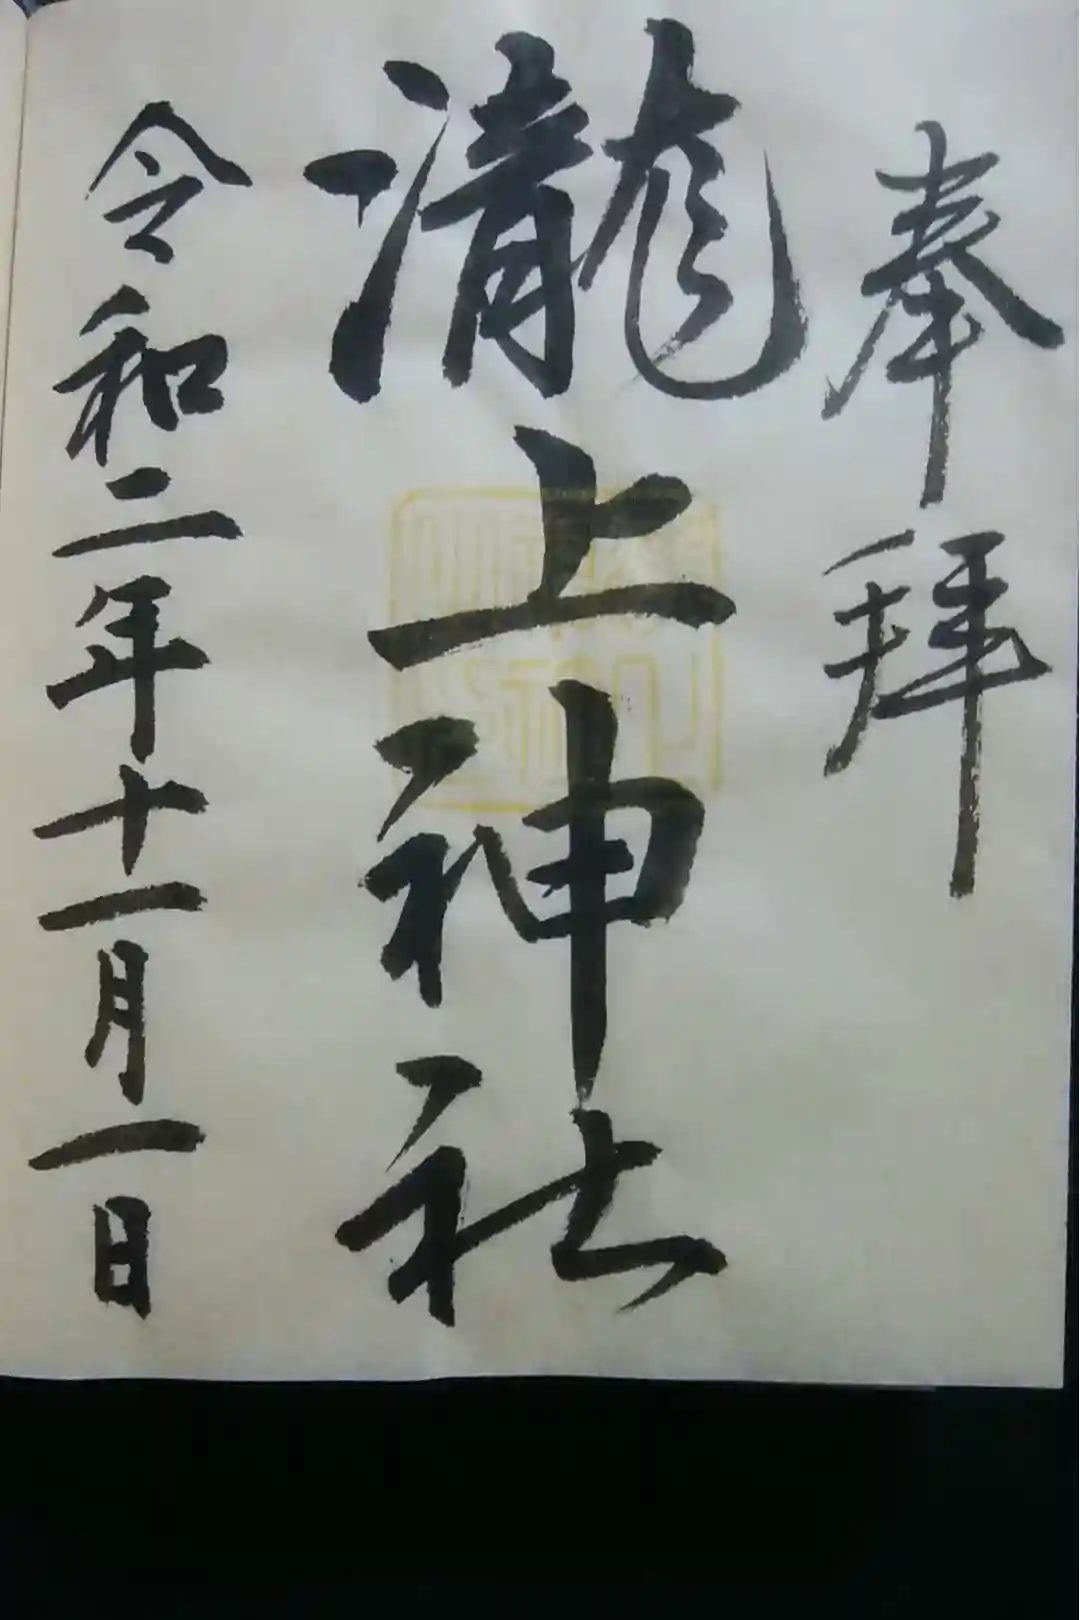 奉拜
瀧上神社
令和二年十一月一日